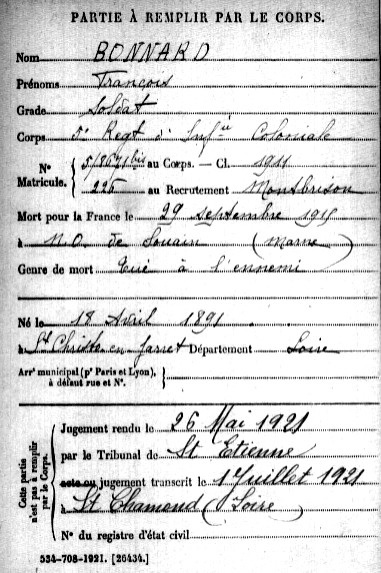 PARTIE À REMPLIR PAR LE CORPS.
Nom BONNARD
Prénoms François
Grade Soldat
Corps 5e Regt d'Infie Coloniale
N° Matricule. { 5/8671 bis au Corps. — Cl. 1911
226 au Recrutement Montbrison
Mort pour la France le 29 septembre 1915
à N.O. de Souain (Marne)
Genre de mort Tué à l'ennemi
Né le 18 Avril 1891
à St Christo en Jarret Département Loire
Arrt municipal (pr Paris et Lyon), à défaut rue et N°.
Cette partie n'est pas à remplir par le Corps.
Jugement rendu le 26 Mai 1921
par le Tribunal de St Etienne
acte ou jugement transcrit le 1 Juillet 1921
à St Chamond (Loire)
N° du registre d'état civil
534-708-1921. [26434.]